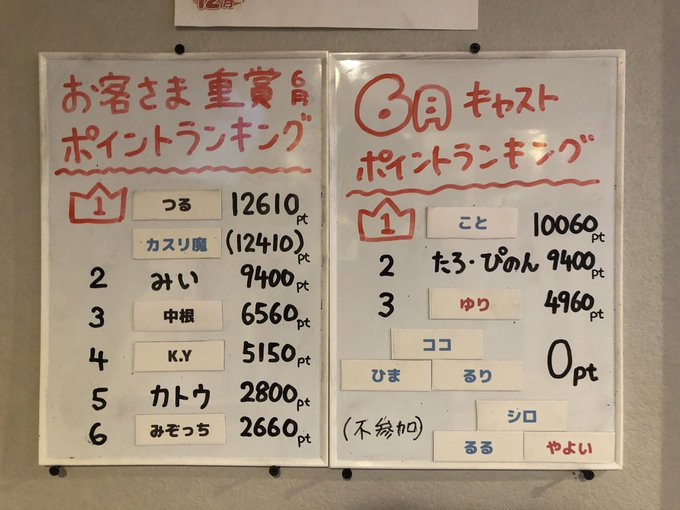 12月
お客さま 重賞 6月
ポイントランキング
1 つる 12610pt
カスリ魔 (12410)pt
2 みい 9400pt
3 中根 6560pt
4 K.Y 5150pt
5 カトウ 2800pt
6 みぞっち 2660pt
6月 キャスト
ポイントランキング
1 こと 10060pt
2 たろ・ぴのん 9400pt
3 ゆり 4960pt
ココ
ひま るり 0pt
シロ
(不参加) るる やよい